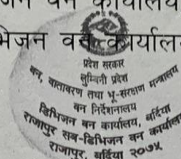 वन कार्यालय
भिजन वन कार्यालय
प्रदेश सरकार
लुम्बिनी प्रदेश
वन, वातावरण तथा भू-संरक्षण मन्त्रालय
वन निर्देशनालय
डिभिजन वन कार्यालय, बर्दिया
राजापुर सब-डिभिजन वन कार्यालय
राजापुर, बर्दिया २०७५